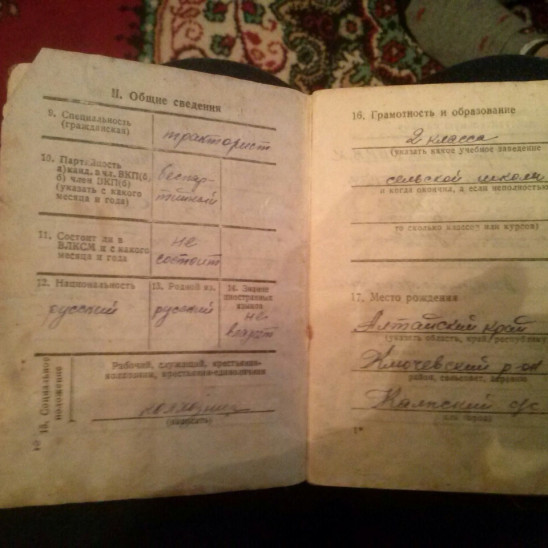 II. Общие сведения
9. Специальность
(гражданская)
тракторист
10. Партийность
а) канд. в чл. ВКП(б),
б) член ВКП(б)
(указать с какого
месяца и года)
беспар-
тийный
11. Состоит ли в
ВЛКСМ и с какого
месяца и года
не
состоит
12. Национальность
русский
13. Родной яз.
русский
14. Знание
иностранных
языков
не
владеет
15. Социальное
положение
Рабочий, служащий, крестьянин-
колхозник, крестьянин-единоличник
колхозник
(вписать)
16. Грамотность и образование
2 класса
(указать какое учебное заведение
сельской школы
и когда окончил, а если неполностью
то сколько классов или курсов)
17. Место рождения
Алтайский край
(указать область, край, республику
Ключевский р-он
район, сельсовет, деревня
с/с
или город)
1*